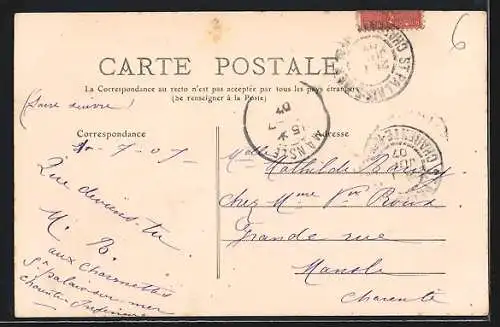 6
CARTE POSTALE
La Correspondance au recto n'est pas acceptée par tous les pays étrangers
(Se renseigner à la Poste)
(faire suivre)
Correspondance
Adresse
MANSLE
15 - 7
07
ST PALAIS
CHARENTE
07
1 - 7 - 07
Que deviens-tu
M. R.
aux Charmettes
St palais-sur-mer
Charente Inférieure
Melle Mathilde
chez Mme Vve Roux
Grande rue
Mansle
Charente